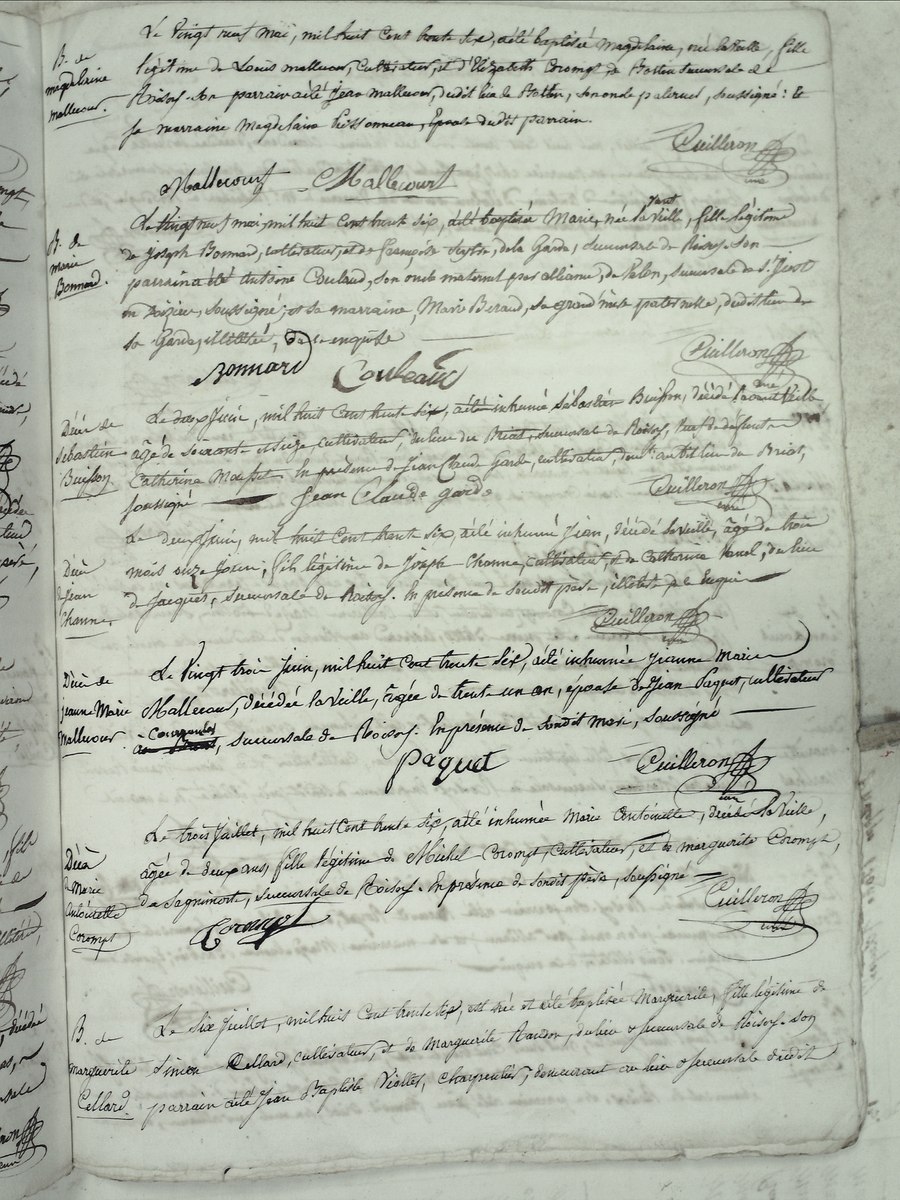 B. de magdelaine mallecour.
Le Vingt neuf Mai, mil huit Cent trente six, a été baptisée Magdelaine, née la veille, fille
légitime de Louis mallecour, cultivateur, et d'Elizabeth Corompt de succursale de
Roisey. son parrain a été Jean mallecour, dudit lieu de son oncle paternel, soussigné: Et
sa marraine Magdelaine épouse dudit parrain.
Cuilleron
curé
Mallecourt Mallecourt
B. de marie Bonnard.
Le Vingt neuf mai, mil huit Cent trente six, a été baptisée Marie, née l'avant veille, fille légitime
de Joseph Bonnard, cultivateur, et de françoise de la Garde, succursale de Roisey. Son
parrain a été Antoine Couland, son oncle maternel par alliance, de Pelon, succursale de St. Just
en Doizieu, soussigné; et sa marraine, Marie Beraud, sa grand'mère paternelle, dudit lieu de
la Garde, illitérée, de ce enquise
Cuilleron
curé
Bonnard Couleaux
Décès de sébastien Buisson
Le deux Juin, mil huit Cent trente six, a été inhumé sébastien Buisson, décédé l'avant veille
âgé de soixante et seize cultivateur, du lieu du Briat, succursale de Roisey, veuf de défunte
Catherine En présence de Jean Claude Garde, cultivateur, dudit lieu du Briat,
soussigné Jean Claude garde
Cuilleron
curé
Décès de Jean Channe.
Le deux Juin, mil huit Cent trente six, a été inhumé Jean, décédé la veille, âgé de trois
mois onze jours, fils légitime de Joseph Channe, cultivateur, et de Catherine du lieu
de Jacques, succursale de Roisey. En présence de sondit père, illitéré de ce enquis
Cuilleron
curé
Décès de Jeanne Marie Mallecour.
Le Vingt trois Juin, mil huit Cent trente six, a été inhumée Jeanne Marie
Mallecour, décédée la veille, âgée de trente un an, épouse de Jean Paquet, cultivateur
à succursale de Roisey. En présence de sondit mari, soussigné
Paquet
Cuilleron
curé
Décès de Marie Antoinette Corompt
Le trois Juillet, mil huit Cent trente six, a été inhumée Marie Antoinette, décédée la veille,
âgée de deux ans, fille légitime de Michel Corompt, cultivateur, et de marguerite Corompt,
de Sagnimorte, succursale de Roisey. En présence de sondit père, soussigné
Corompt
Cuilleron
curé
B. de marguerite Cellard.
Le six Juillet, mil huit Cent trente six, est née et a été baptisée Marguerite, fille légitime de
simon Cellard, cultivateur, et de Marguerite du lieu & succursale de Roisey. son
parrain a été Jean Baptiste Viollet, charpentier, demeurant au lieu & succursale dudit